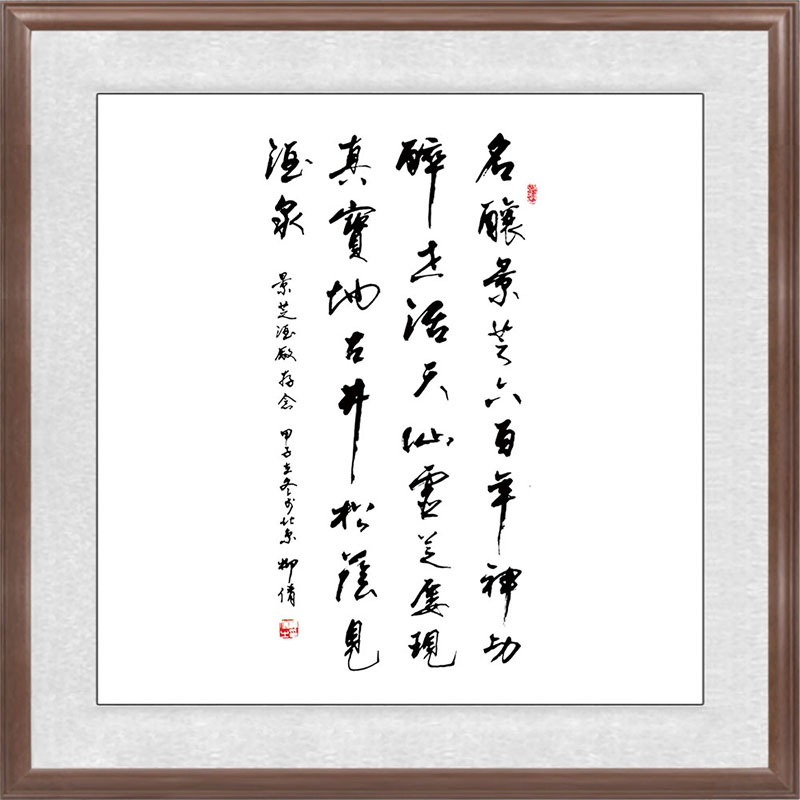 名釀景芝六百年神功
醉活天仙靈芝屢現
真寶地古井松蔭見
酒泉
景芝酒廠存念 甲子立冬於北京 柳倩